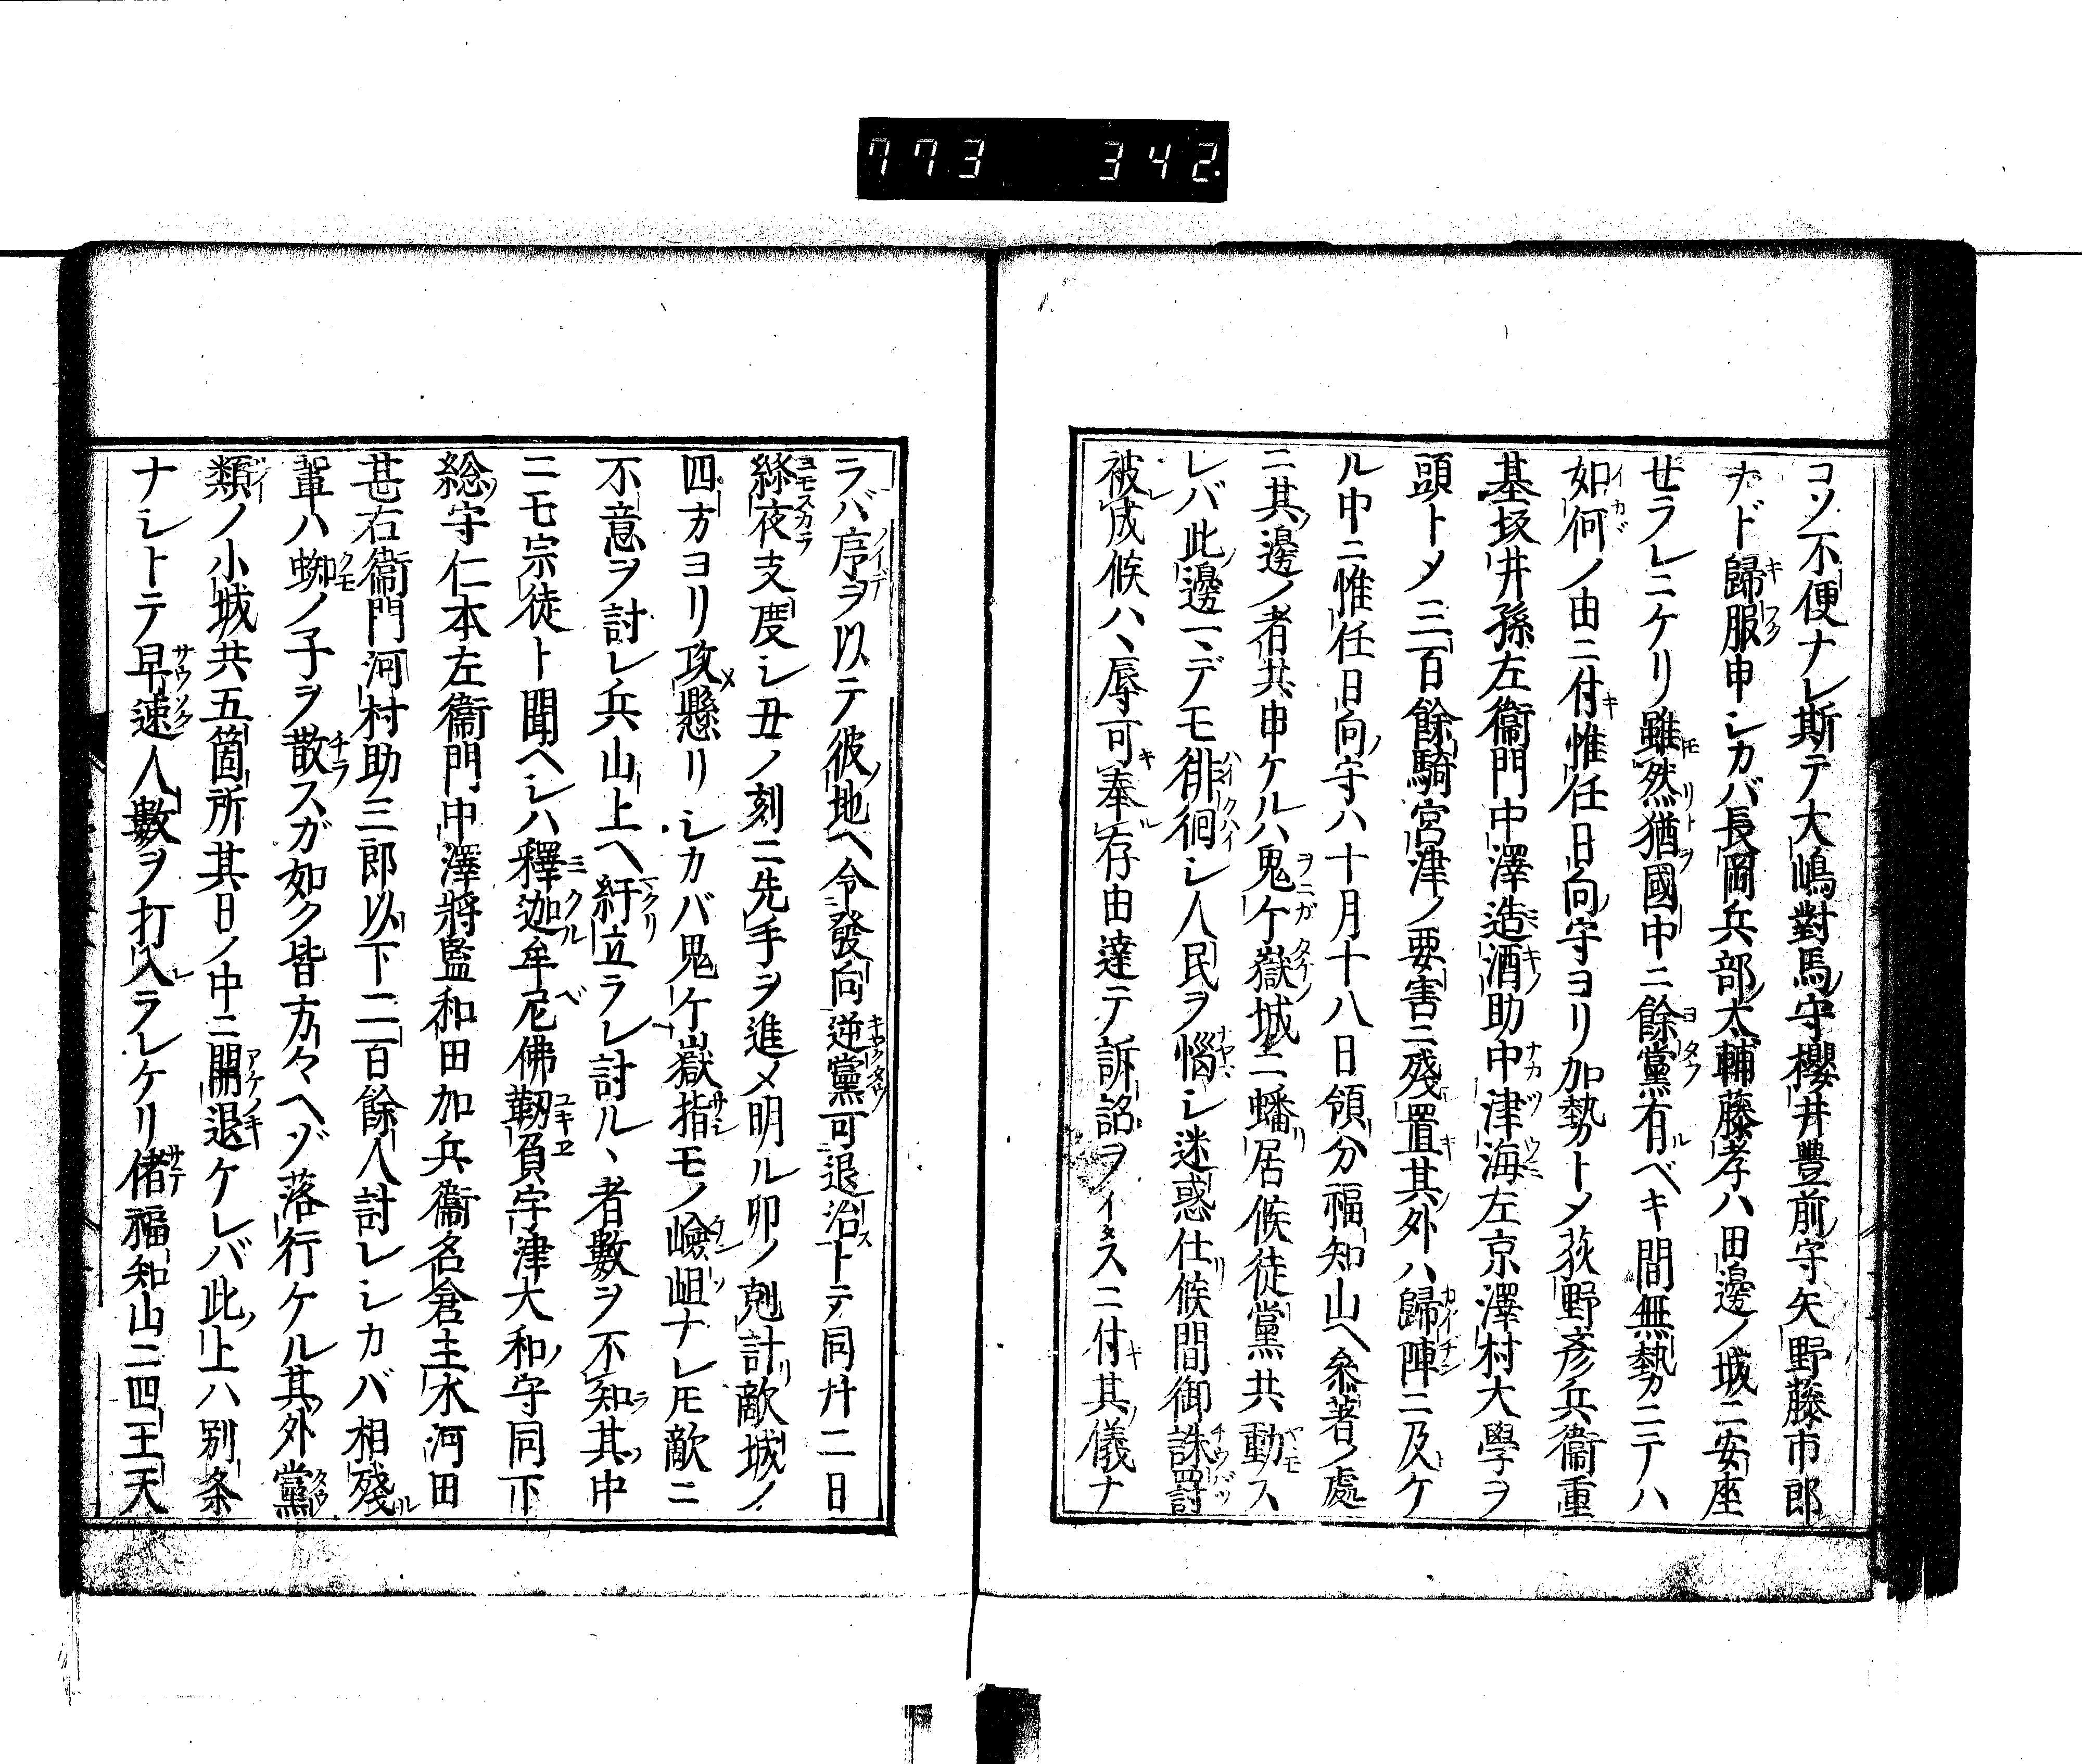 773 342
コソ不便ナレ斯テ大嶋對馬守櫻井豊前守矢野藤市郎
ナド歸服申シカバ長岡兵部太輔藤孝ハ田邊ノ城ニ安座
セラレニケリ雖然猶國中ニ餘黨有ベキ間無勢ニテハ
如何ノ由ニ付惟任日向守ヨリ加勢トメ荻野彦兵衞重
基坂井孫左衞門中澤造酒助中津海左京澤村大學ヲ
頭トメ三百餘騎宮津ノ要害ニ殘置其外ハ歸陣ニ及ケ
ル中ニ惟任日向守ハ十月十八日領分福知山ヘ参著ノ處
ニ其邊ノ者共申ケルハ鬼ケ嶽城ニ蟠居候徒黨共動ス
レバ此邊ヘデモ徘徊シ人民ヲ惱シ迷惑仕候間御誅罸
被成候ハヽ辱可奉存由達テ訴詔ヲイタスニ付其儀ナ
ラバ序ヲ以テ彼地ヘ令發向逆黨可退治トテ同廾二日
終夜支度シ丑ノ刻ニ先手ヲ進メ明ル卯ノ尅計敵城ノ
四方ヨリ攻懸リシカバ鬼ケ嶽指モノ嶮岨ナレ𪜈敵ニ
不意ヲ討レ兵山上ヘ紆立ラレ討ルヽ者數ヲ不知其中
ニモ宗徒ト聞ヘシハ釋迦牟尼佛靱負宇津大和守同下
総守仁本左衞門中澤將監和田加兵衞名倉主水河田
甚右衞門河村助三郎以下二百餘人討レシカバ相殘
輩ハ蜘ノ子ヲ散スガ如ク皆方々ヘゾ落行ケル其外黨
類ノ小城共五箇所其日ノ中ニ開退ケレバ此上ハ别条
ナシトテ早速人數ヲ打入ラレケリ偖福知山ニ四王天